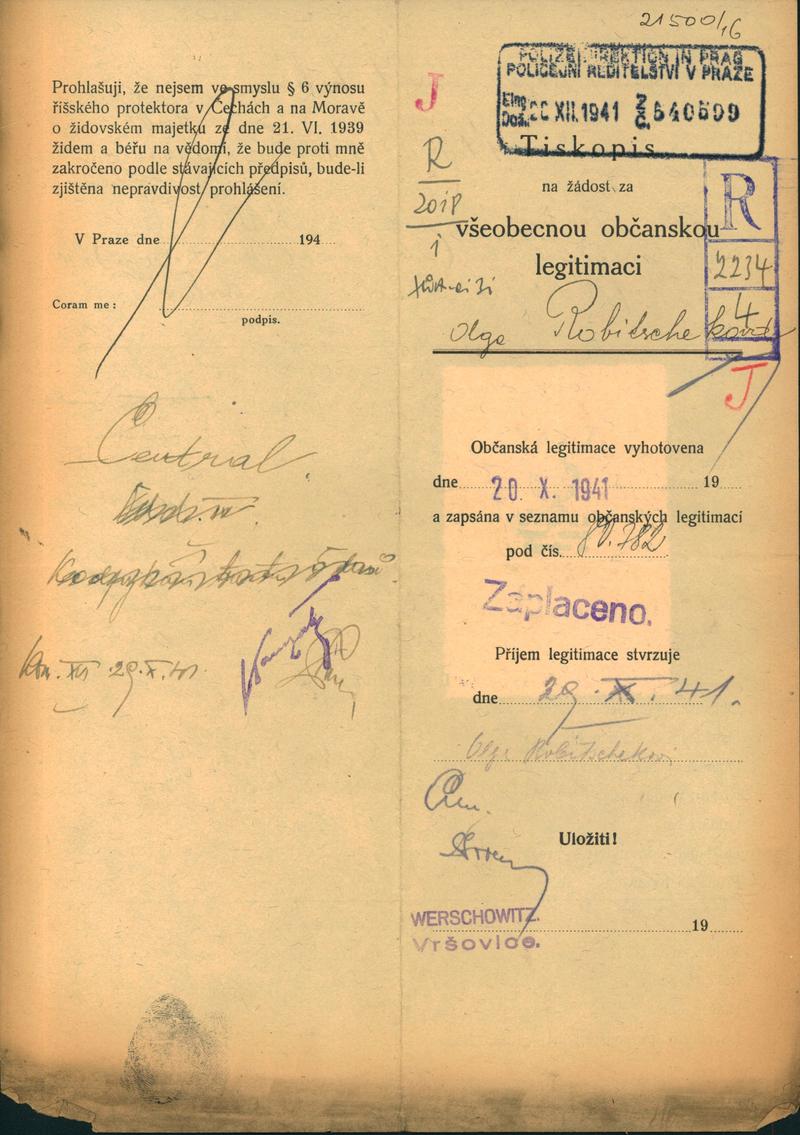 Prohlašuji, že nejsem ve smyslu § 6 výnosu
říšského protektora v Čechách a na Moravě
o židovském majetku ze dne 21. VI. 1939
židem a béřu na vědomí, že bude proti mně
zakročeno podle stávajících předpisů, bude-li
zjištěna nepravdivost prohlášení.
V Praze dne 194
Coram me :
podpis.
Central
29.X.41
21500/16
POLIZEIDIREKTION IN PRAG
POLICEJNÍ ŘEDITELSTVÍ V PRAZE
XII.1941
J
R
Tiskopis
na žádost za
všeobecnou občanskou
legitimaci
R
2234
4
Olga Robitscheková
J
Občanská legitimace vyhotovena
dne 20. X. 1941 19
a zapsána v seznamu občanských legitimací
pod čís.
Zaplaceno.
Příjem legitimace stvrzuje
dne 29. X. 41.
Olga Robitscheková
Uložiti!
WERSCHOWITZ.
Vršovice.
19